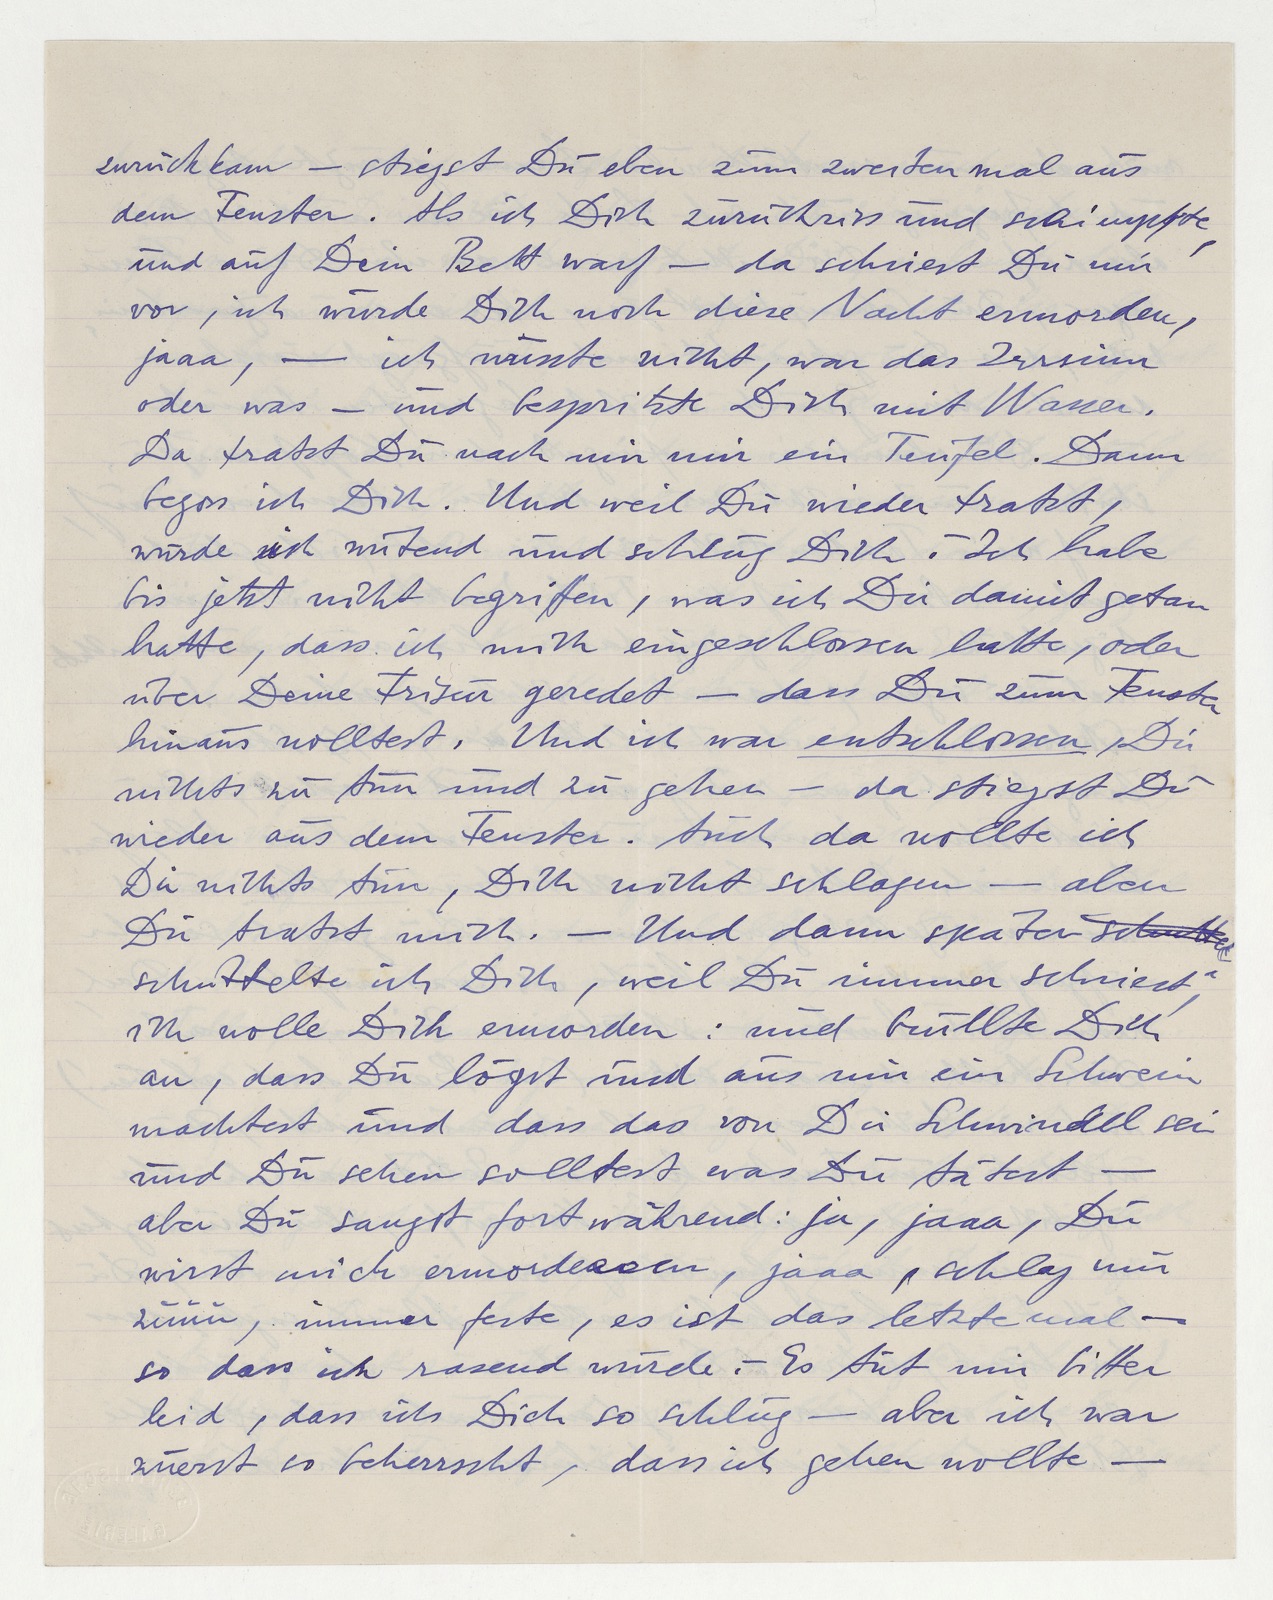 zurückkam — stiegst Du eben zum zweitenmal aus
dem Fenster. Als ich Dich zurückriss und schimpfte,
und auf Dein Bett warf — da schriest Du mir
vor, ich würde Dich noch diese Nacht ermorden,
jaaa, — ich wüsste nicht, war das Irrsinn
oder was — und bespritzte Dich mit Wasser.
Da tratst Du nach mir wie ein Teufel. Dann
begoss ich Dich. Und weil Du wieder tratst,
wurde ich wütend und schlug Dich. — Ich habe
bis jetzt nicht begriffen, was ich Dir damit getan
hatte, dass ich mich eingeschlossen hatte, oder
über Deine Frisur geredet — dass Du zum Fenster
hinaus wolltest. Und ich war entschlossen, Dir
nichts zu tun und zu gehen — da stiegst Du
wieder aus dem Fenster. Auch da wollte ich
Dir nichts tun, Dich nicht schlagen — aber
Du tratst mich. — Und dann später
schüttelte ich Dich, weil Du immer schriest,
ich wolle Dich ermorden: und brüllte Dich
an, dass Du lögst und aus mir ein Schwein
machtest und dass das von Dir Schwindel sei
und Du sehen solltest was Du tätest —
aber Du sangst fortwährend: ja, jaaa, Du
wirst mich ermordeeeen, jaaa, schlag nur
züüü, immer feste, es ist das letztemal —
so dass ich rasend wurde. — Es tut mir bitter
leid, dass ich Dich so schlug — aber ich war
zuerst so beherrscht, dass ich gehen wollte —